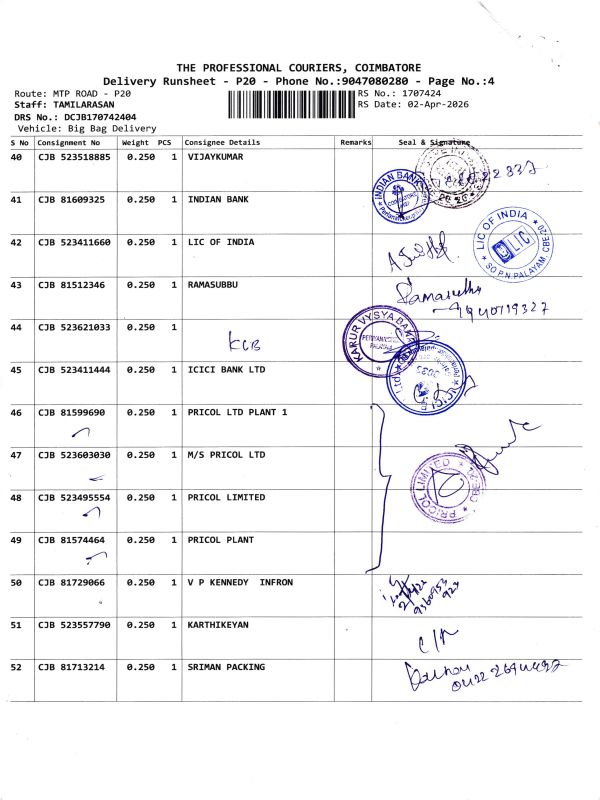 THE PROFESSIONAL COURIERS, COIMBATORE
Delivery Runsheet - P20 - Phone No.:9047080280 - Page No.:4
Route: MTP ROAD - P20
RS No.: 1707424
Staff: TAMILARASAN
RS Date: 02-Apr-2026
DRS No.: DCJB170742404
Vehicle: Big Bag Delivery
S No Consignment No Weight PCS Consignee Details Remarks Seal & Signature
40 CJB 523518885 0.250 1 VIJAYKUMAR
41 CJB 81609325 0.250 1 INDIAN BANK
INDIAN BANK
42 CJB 523411660 0.250 1 LIC OF INDIA
LIC OF INDIA
LIC
S O P.N.PALAYAM. CBE-20
43 CJB 81512346 0.250 1 RAMASUBBU
44 CJB 523621033 0.250 1
KCB
KARUR VYSYA BANK
45 CJB 523411444 0.250 1 ICICI BANK LTD
46 CJB 81599690 0.250 1 PRICOL LTD PLANT 1
47 CJB 523603030 0.250 1 M/S PRICOL LTD
PRICOL LIMITED
48 CJB 523495554 0.250 1 PRICOL LIMITED
49 CJB 81574464 0.250 1 PRICOL PLANT
50 CJB 81729066 0.250 1 V P KENNEDY INFRON
51 CJB 523557790 0.250 1 KARTHIKEYAN
52 CJB 81713214 0.250 1 SRIMAN PACKING